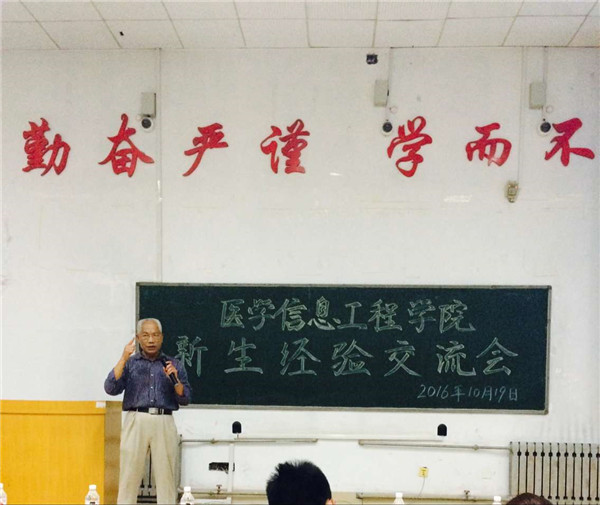 勤奋严谨 学而不
医学信息工程学院
新生经验交流会
2016年10月19日